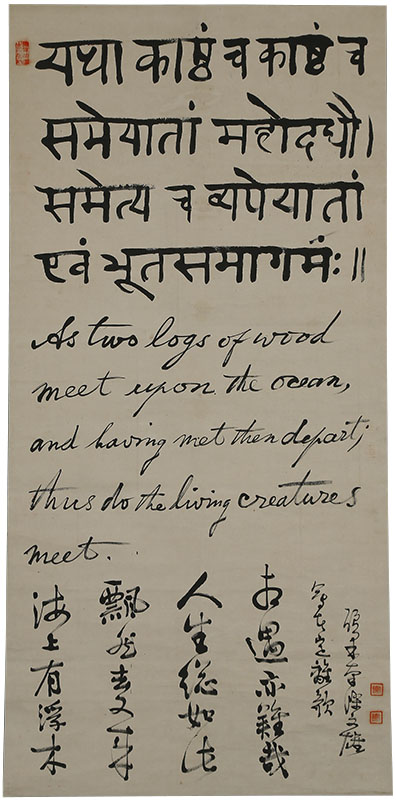 यथा काष्ठं च काष्ठं च
समेयातां महोदधौ।
समेत्य च व्यपेयातां
एवं भूतसमागमंः॥
As two logs of wood
meet upon the ocean,
and having met then depart;
thus do the living creatures
meet.
海上有浮木
飄然去又来
人生総如此
相遇亦難哉
會者定離歌
碩果南條文雄